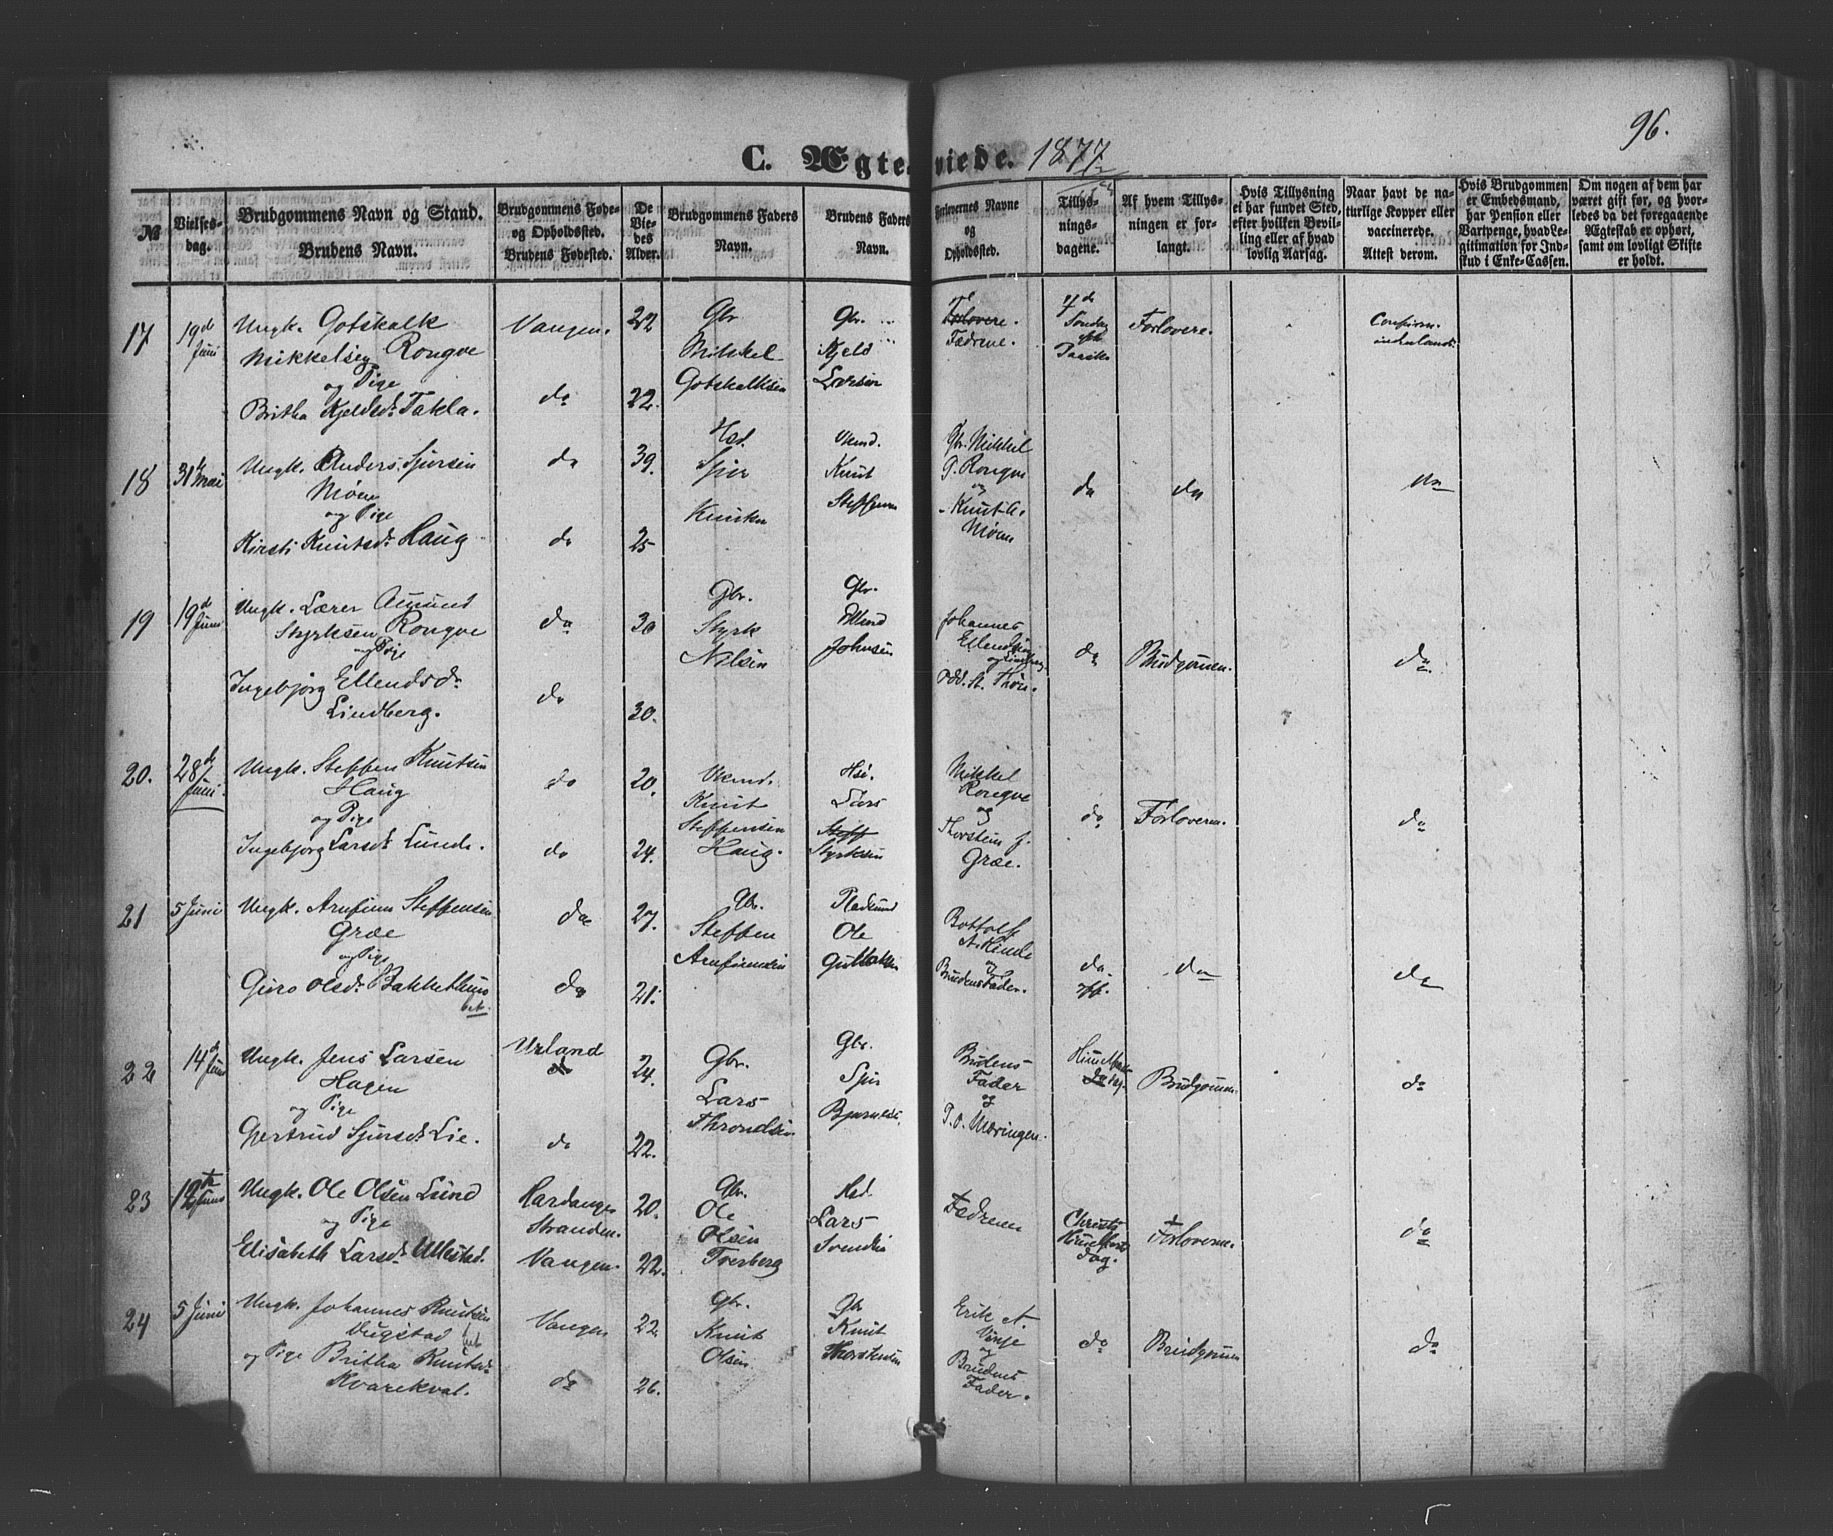 96.
C. Ægteviede. 1877
№
Vielsesdag.
Brudgommens Navn og Stand.
Brudens Navn.
Brudgommens Føde- og Opholdssted.
Brudens Fødested.
De Viedes Alder.
Brudgommens Faders Navn.
Brudens Faders Navn.
Forlovernes Navne og Opholdssted.
Tillysningsdagene.
Af hvem Tillysningen er forlangt.
Hvis Tillysning ei har fundet Sted, efter hvilken Bevilling eller af hvad lovlig Aarsag.
Naar havt de naturlige Kopper eller vaccinerede.
Attest derom.
Hvis Brudgommen er Embedsmand, har Pension eller Vartpenge, hvad Legitimation for Indskud i Enke-Cassen.
Om nogen af dem har været gift før, og hvorledes da det foregaaende Ægteskab er ophørt, samt om lovligt Skifte er holdt.
17 19de Juni Ungk. Gotskalk Vangen. 22 Gbr Gbr. Forlovere. 4de Søndag Forlovere.
Mikkelsen Rongve Mikkel Kjeld Fædrene. Paaske
og Pige Gotskalksen Larsen
Britha Kjeldsd. Takla. do 22.
18 31te Mai Ungk. Anders Sjursen do 39. Hsd. Gbr. Mikkel
Møen Sjur Knut G. Rongve do do do
og Pige Knutsen Steffensen og Knut A.
Kirsti Knutsd. Haug do 25 Møen
19 19de Juni Ungk. Lærer Amund do 30 Gbr. Gbr. Johannes
Styrksen Rongve Styrk Ellend Ellendsen do Brudgomen. do
og Pige Nilsen Johnsen og
Ingebjørg Ellendsd. do 30. Odd. St.
Lindberg.
20. 28de Juni. Ungk. Steffen Knutsen do 20. Hsd. Mikkel
Haug Knut Lars Rongve do Forloverne. do
og Pige Steffensen Steff og Thorstein J.
Ingebjørg Larsd. Lunde. do 24. Haug. Styrksen Græe.
21 5 Juni Ungk. Arnfinn Steffensen do 27. Gbr. Pladsmd Bottolf
Græe Steffen Ole A. Hinde do do do
og Pige Arnfinnsen Guttoksen og
Guro Olsd. Bakkethun do 21. Brudens Fader.
22 14de Juni Ungk. Jens Larsen Urland 24. Gbr. Gbr. Brudens do Brudgomen. do
Hagen do Lars Sjur Fader
og Pige Throndsen og
Gertrud Sjursd. Lie. do 22.
23 Juni Ungk. Ole Olsen Lund Hardanger 20. Gbr. Hsd. Fædrene Christi Forloverne. do
og Pige Stranden. Ole Lars Himmelfarts
Elisabeth Larsd. Ullestad. Vangen. 22. Olsen Svendsen dag.
Tverberg
24 5 Juni Ungk. Johannes Knutsen Vangen 22 Gbr. Gbr Erik A. do Brudgomen do
Dugstad Knut Knut Vinje
og Pige Britha Knutsd. do 26. Olsen. Thorsteinsen og Brudens
Kvarekval. Fader.